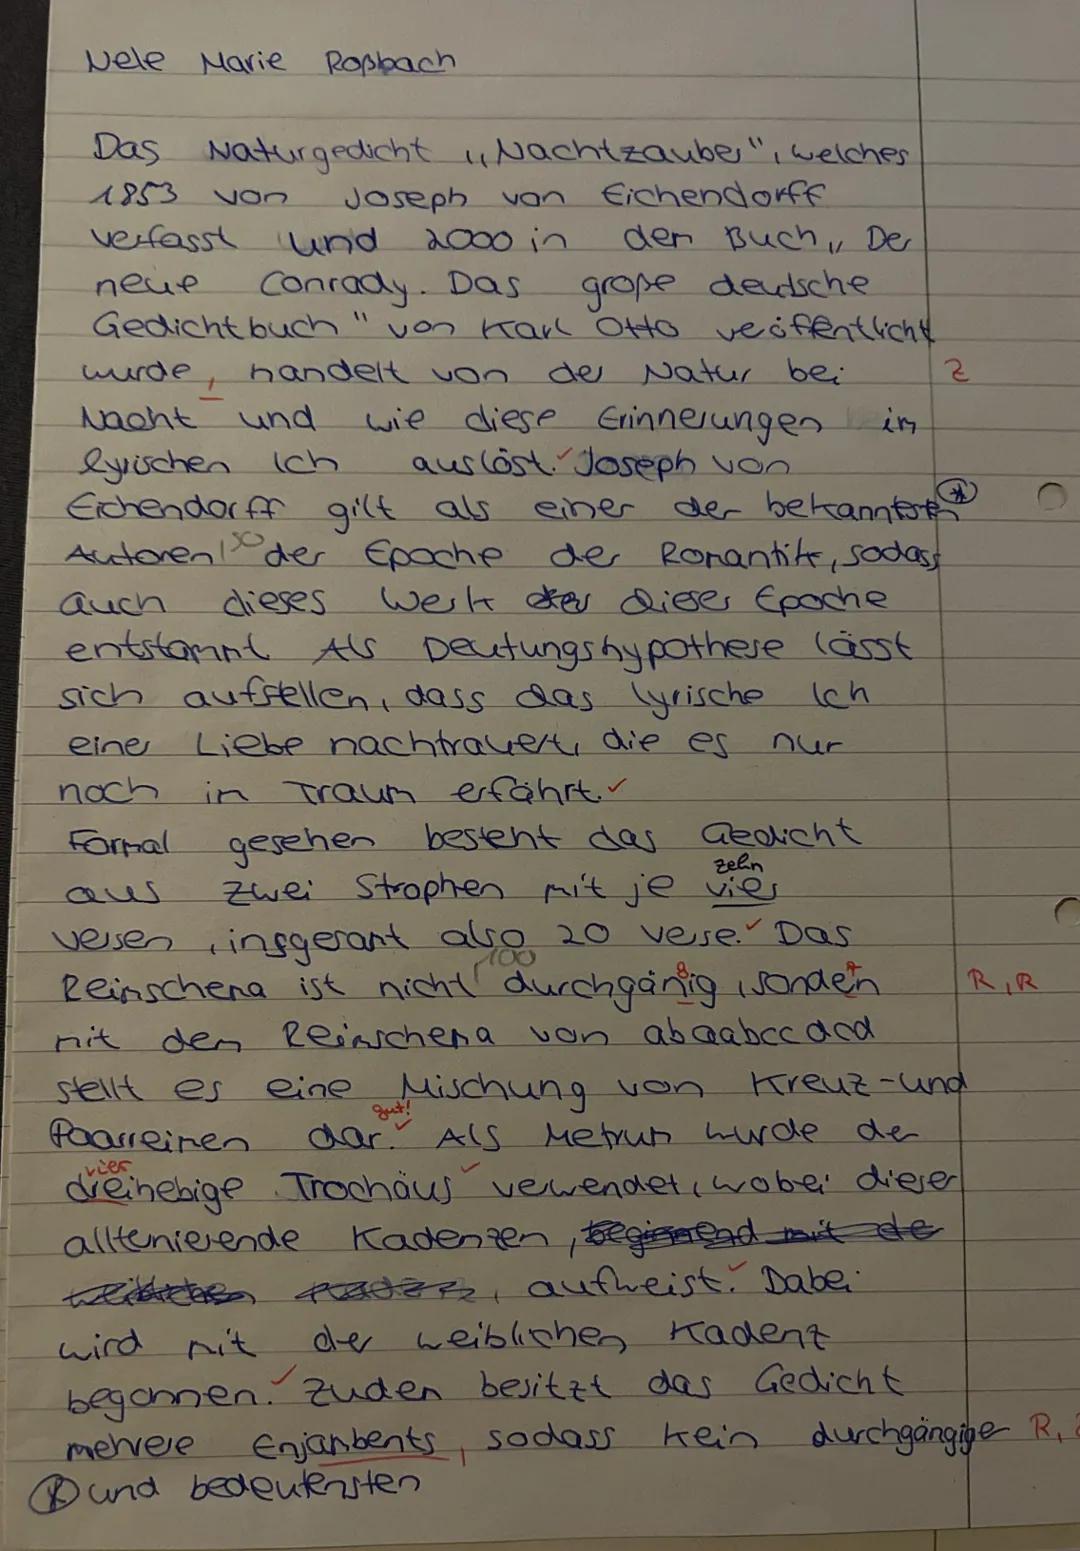 Nele Marie Roßbach
Das Naturgedicht „Nachtzauber", welches
1853 von Joseph von Eichendorff
verfasst und 2000 in dem Buch „Der
neue Conrady. Das große deutsche
Gedichtbuch" von Karl Otto veröffentlicht
wurde, handelt von der Natur bei Z
Nacht und wie diese Erinnerungen im
lyrischen Ich auslöst. Joseph von
Eichendorff gilt als einer der bekanntesten
Autoren 50 der Epoche der Romantik, sodass
auch dieses Werk dieser Epoche
entstammt Als Deutungshypothese lässt
sich aufstellen, dass das lyrische Ich
einer Liebe nachtrauert, die es nur
noch in Traum erfährt.
Formal gesehen besteht das Gedicht
zehn
aus zwei Strophen mit je vier
Versen, insgesamt also 20 Verse. Das
100
Reimschema ist nicht durchgänig, sondern R, R
g r
mit dem Reimschema von abaabccdcd
stellt es eine Mischung von Kreuz- und
gut!
Paarreimen dar. Als Metrum wurde der
vier
dreihebige Trochäus verwendet, wobei dieser
allternierende Kadenzen, beginnend mit der
weiblichen Kadenz, aufweist. Dabei
wird mit der weiblichen Kadenz
begonnen. Zudem besitzt das Gedicht
mehrere Enjambents, sodass kein durchgängiger R,
und bedeutensten